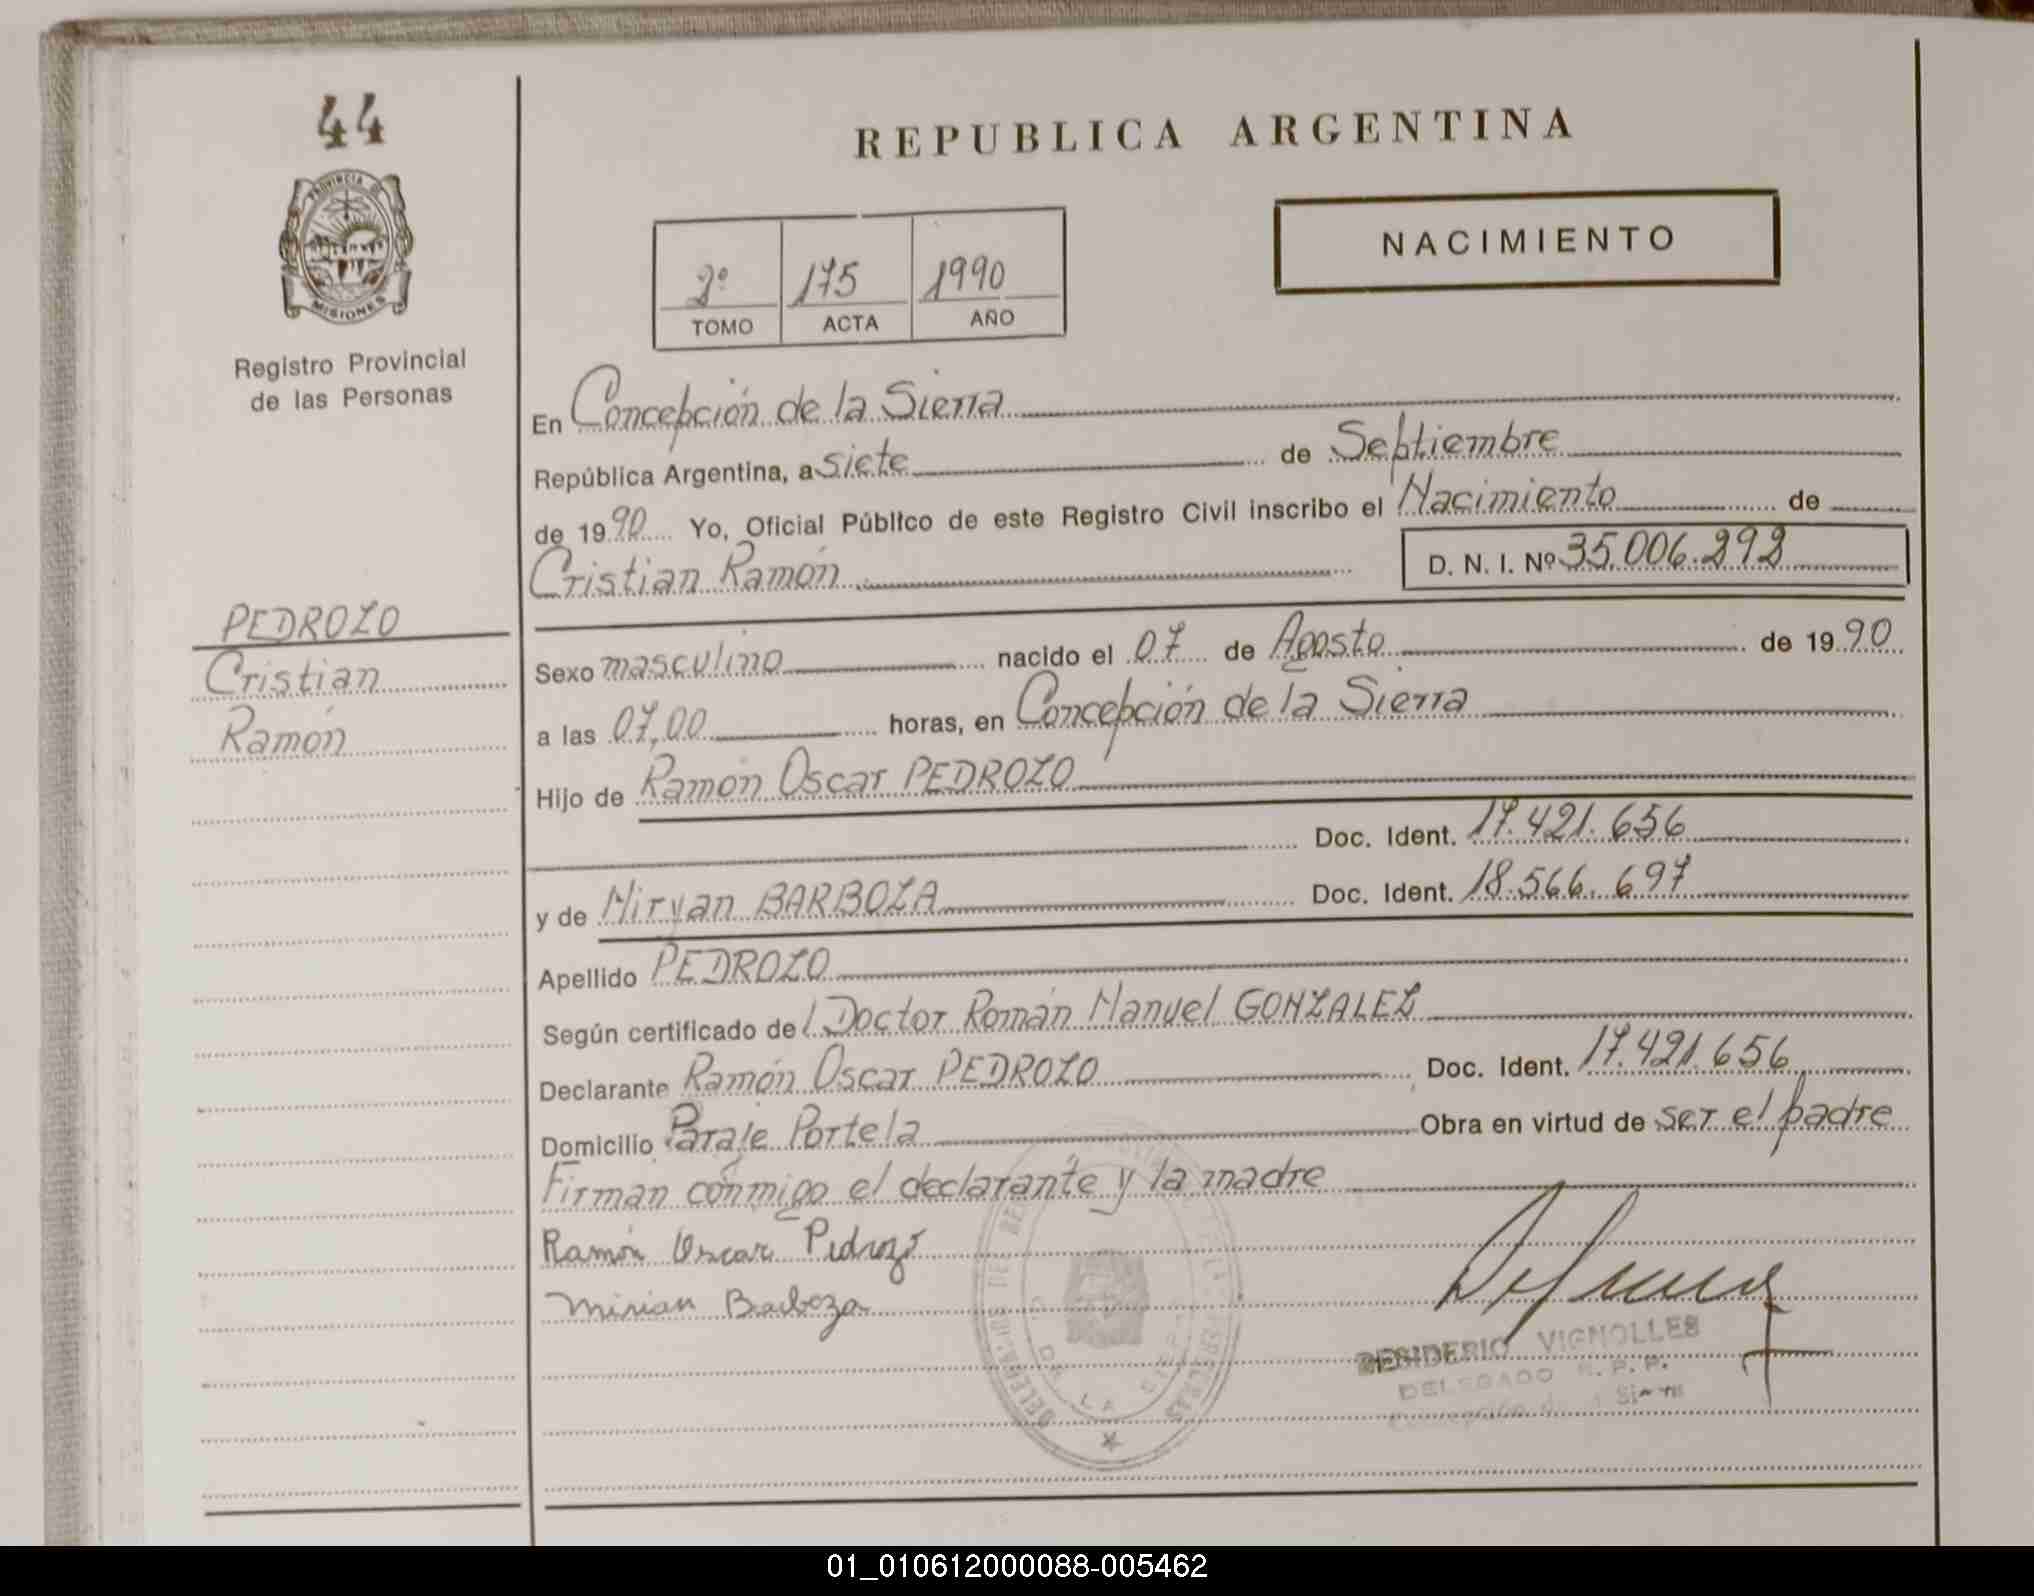 44
PROVINCIA DE
MISIONES
Registro Provincial
de las Personas
PEDROZO
Cristian
Ramón
REPUBLICA ARGENTINA
NACIMIENTO
2º 175 1990
TOMO ACTA AÑO
En Concepción de la Sierra
República Argentina, a siete de Septiembre
de 1990 Yo, Oficial Público de este Registro Civil inscribo el Nacimiento de
Cristian Ramón D. N. I. Nº 35.006.292
Sexo masculino nacido el 07 de Agosto de 1990
a las 07,00 horas, en Concepción de la Sierra
Hijo de Ramón Oscar PEDROZO
Doc. Ident. 17.421.656
y de Miryan BARBOZA Doc. Ident. 18.566.697
Apellido PEDROZO
Según certificado de l Doctor Román Manuel GONZALEZ
Declarante Ramón Oscar PEDROZO Doc. Ident. 17.421.656
Domicilio Paraje Portela Obra en virtud de ser el padre
Firman conmigo el declarante y la madre
Ramón Oscar Pedrozo
Mirian Barboza
DESIDERIO VIGNOLLES
DELEGADO R. P. P.
Concepción Sierra
01_010612000088-005462